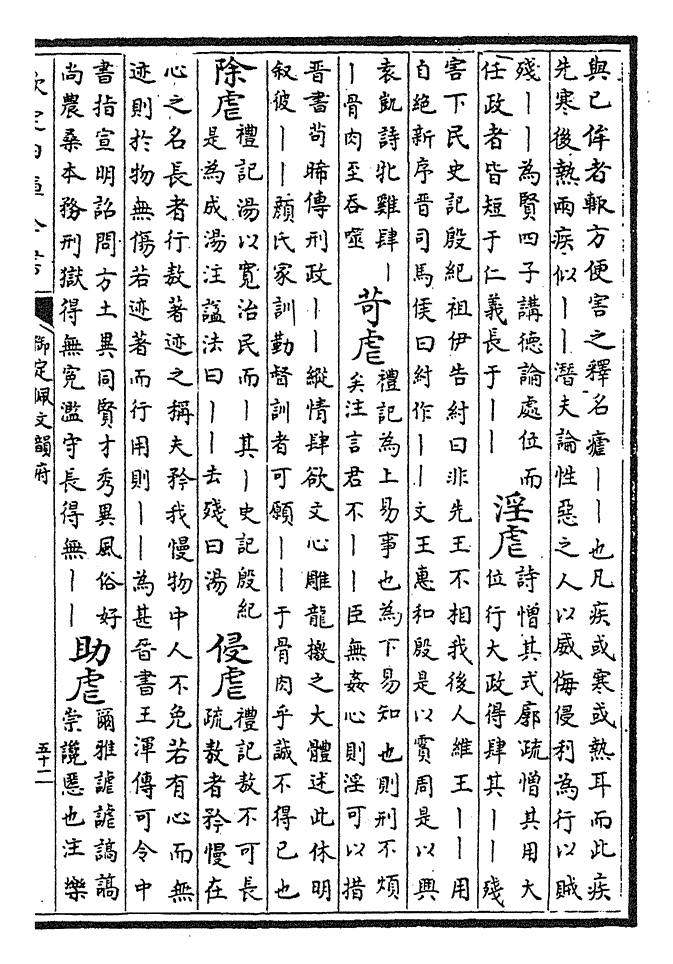 與已侔者輒方便害之釋名瘧丨丨也凡疾或寒或熱耳而此疾
先寒後熱兩疾似丨丨潛夫論性惡之人以威侮侵利為行以賊
殘丨丨為賢四子講德論處位而
任政者皆短于仁義長于丨丨
淫虐
詩憎其式廓疏憎其用大
位行大政得肆其丨丨殘
害下民史記殷紀祖伊告紂曰非先王不相我後人維王丨丨用
自絕新序晉司馬侯曰紂作丨丨文王惠和殷是以霣周是以興
袁凱詩牝雞肆丨
丨骨肉至吞噬
苛虐
禮記為上易事也為下易知也則刑不煩
矣注言君不丨丨臣無姦心則淫可以措
晉書苟晞傳刑政丨丨縱情肆欲文心雕龍檄之大體述此休明
叙彼丨丨顏氏家訓勤督訓者可願丨丨于骨肉乎誠不得已也
除虐
禮記湯以寬治民而丨其丨史記殷紀
是為成湯注諡法曰丨丨去殘曰湯
侵虐
禮記敖不可長
疏敖者矜慢在
心之名長者行敖著迹之稱夫矜我慢物中人不免若有心而無
迹則於物無傷若迹著而行用則丨丨為甚晉書王渾傳可令中
書指宣明詔問方土異同賢才秀異風俗好
尚農桑本務刑獄得無寃濫守長得無丨丨
助虐
爾雅謔謔謞謞
崇讒慝也注樂
欽定四庫全書
御定佩文韻府
五十二